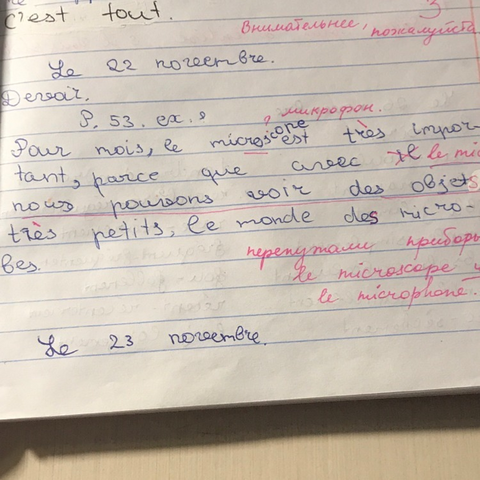 c'est tout.
3
Внимательнее, пожалуйста
Le 22 novembre.
Devoir.
P. 53. ex.
, микрофон.
Pour mois, le microscope est très impor-
tant, parce que avec il le mic
nous pouvons voir des objets
très petits, le monde des micro-
bes.
перепутали приборы
le microscope и
le microphone.
Le 23 novembre.